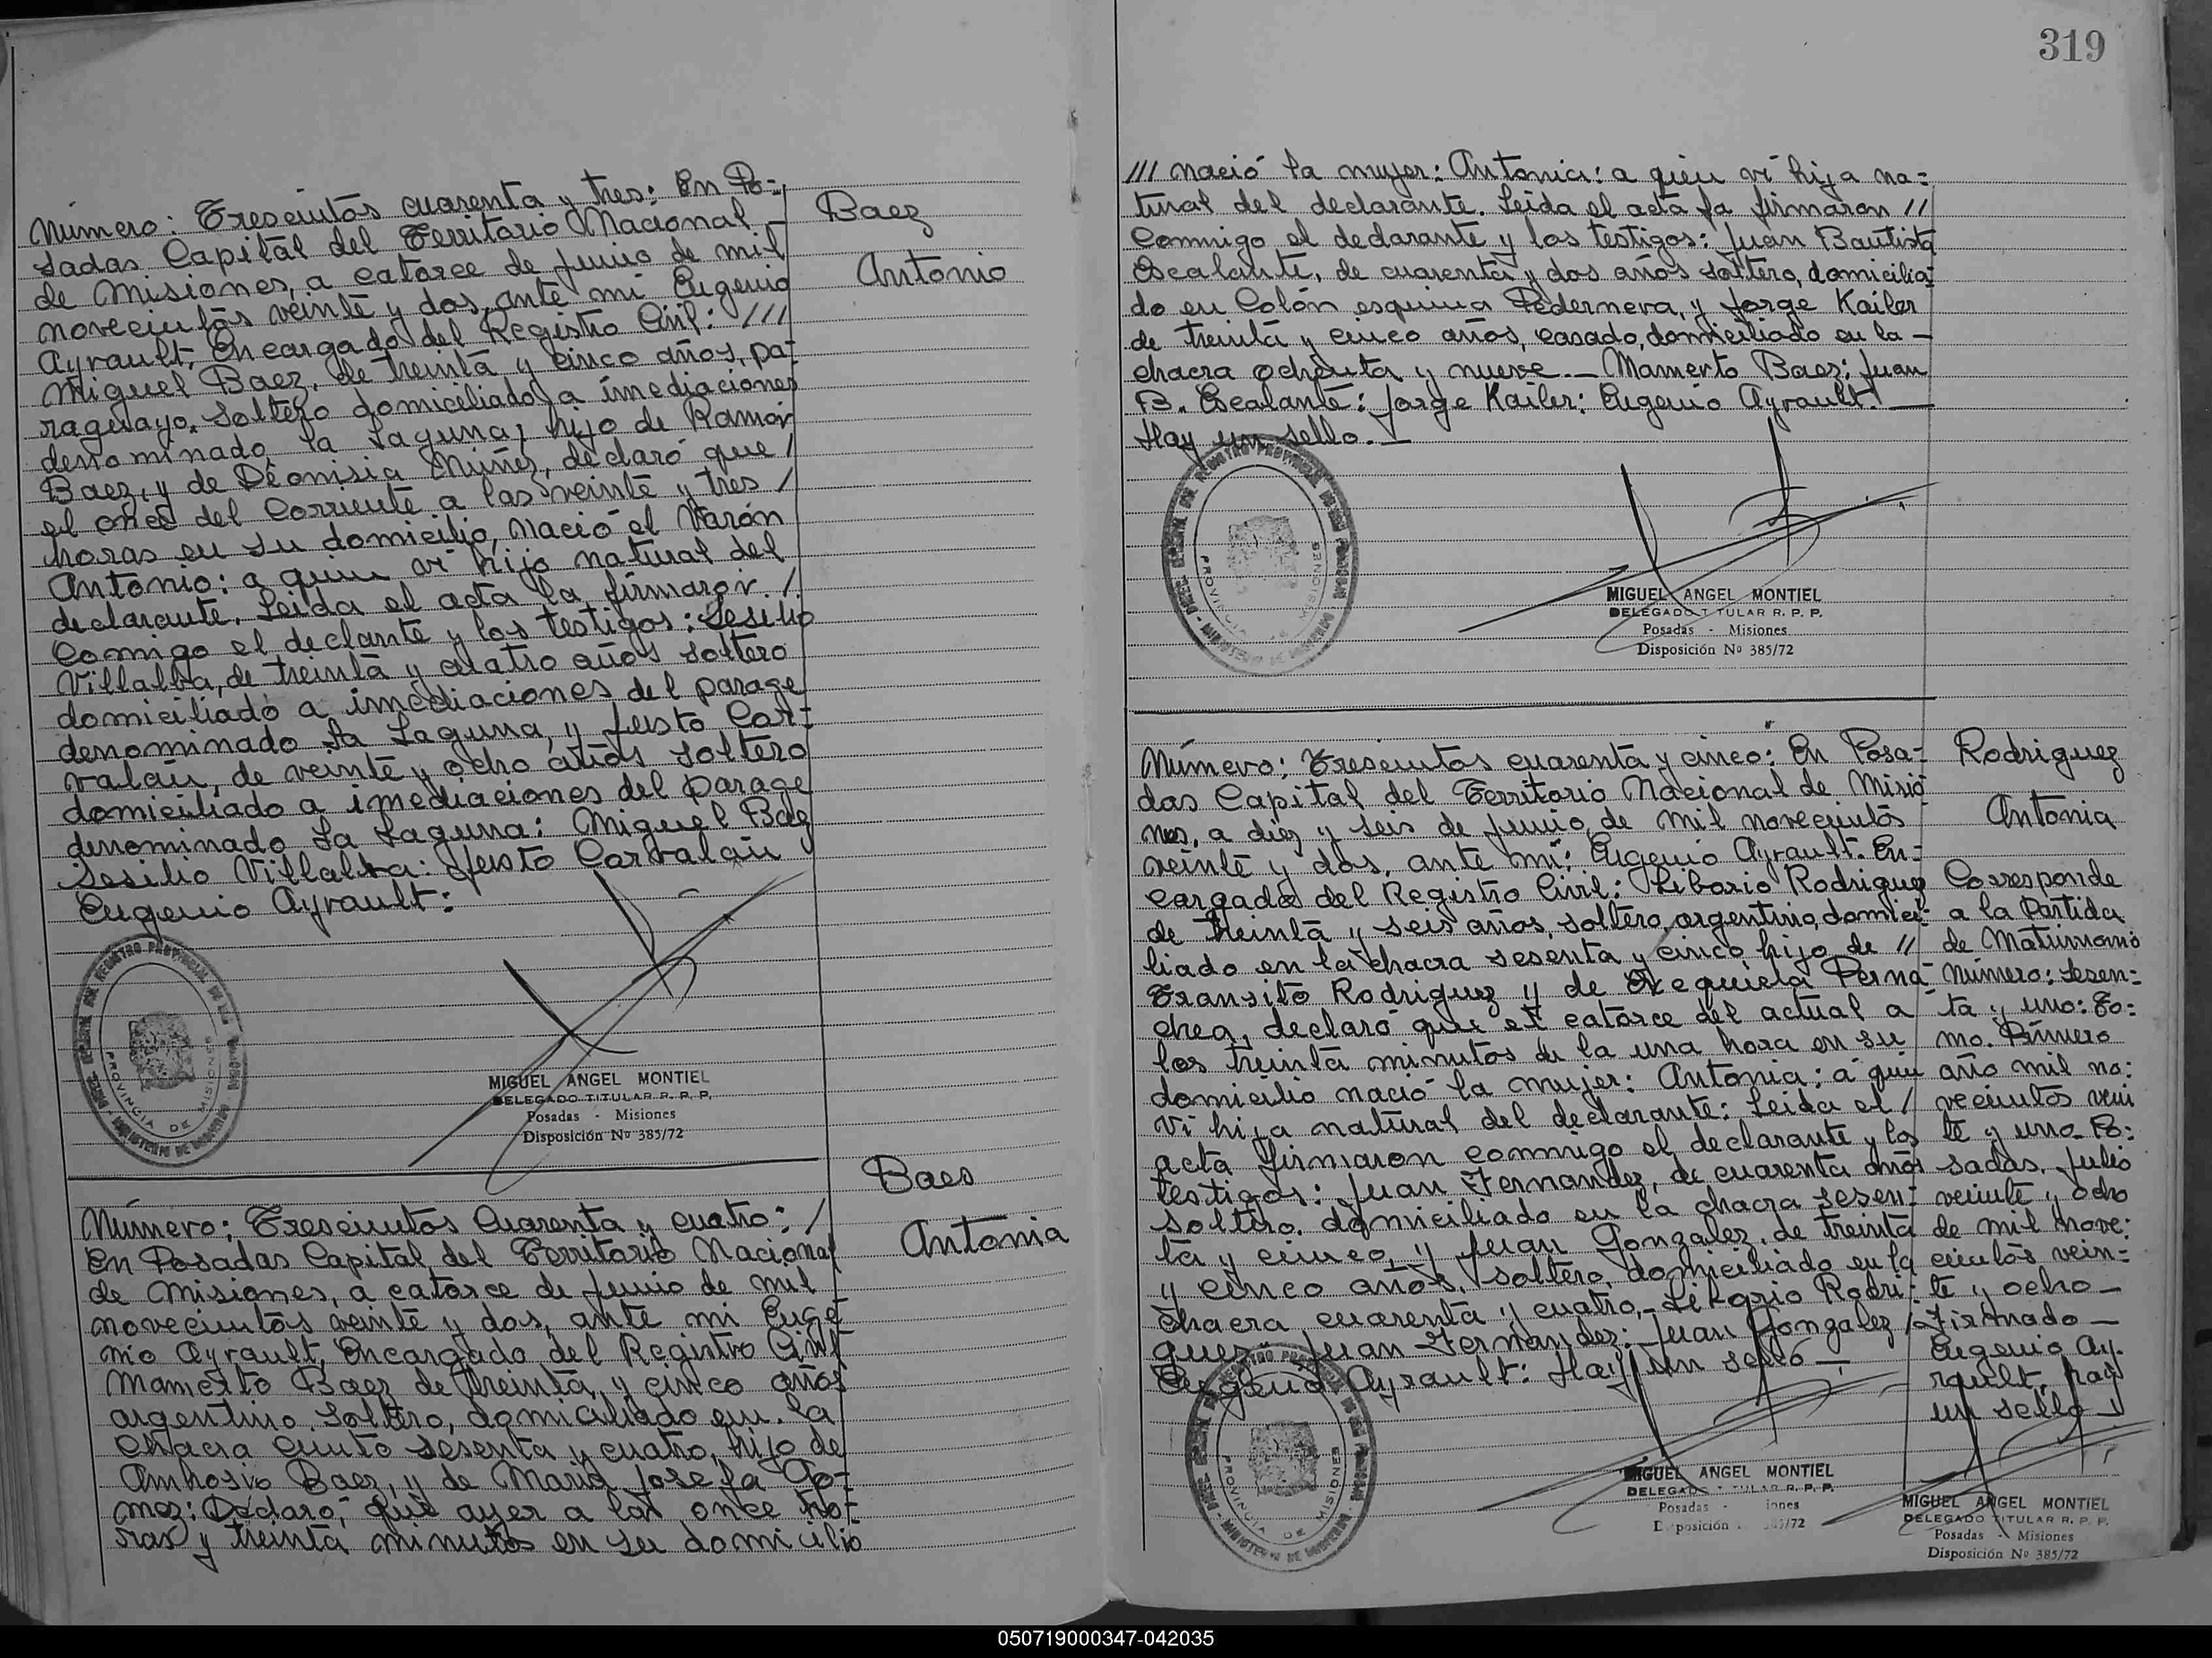 Número: Tresciutos cuarenta y tres: En Po=
sadas Capital del Territorio Nacional -
de Misiones, a catorce de Junio de mil
noveciutos veinte y dos, ante mi Eugenio
Ayrault, Encargado del Registro Civil: ///
Miguel Baez, de treinta y cinco años, pa=
raguayo, soltero domiciliado a imediaciones
denominado la Laguna, hijo de Ramón
Baez, y de Deonisia Muñez, declaró que /
el once del Corriente a las veinte y tres /
horas en su domicilio, nació el Varón
Antonio: a quien vi hijo natural del
declarante. Leida el acta la firmaron. /
Conmigo el declante y los testigos: Sesilio
Villalba, de treinta y cuatro años soltero
domiciliado a imediaciones del parage
denominado La Laguna, y Justo Car=
valán, de veinte y ocho años soltero
domiciliado a imediaciones del parage
denominado La Laguna: Miguel Baez
Sesilio Villalba: Justo Carvalán
Eugenio Ayrault:
Baez
Antonio
MIGUEL ANGEL MONTIEL
DELEGADO TITULAR R. P. P.
Posadas - Misiones
Disposición Nº 385/72
PROVINCIA DE MISIONES
Baes
Antonia
Número: Tresciutos Cuarenta y cuatro: /
En Posadas Capital del Territorio Nacional
de Misiones, a catorce de Junio de mil
noveciutos veinte y dos, ante mi Euge
nio Ayrault, Encargado del Registro Civil
Mamerto Baez de treinta y cinco años
argentino, soltero, domiciliado en la
Chacra Ciento sesenta y cuatro, hijo de
Ambrosio Baez, y de Maria Josefa Go=
mez: Declaró, que ayer a las once ho=
ras y treinta minutos en su domicilio
319
/// nació la mujer: Antonia: a quien vi hija na=
tural del declarante. Leida el acta la firmaron //
Conmigo el declarante y los testigos: Juan Bautista
Escalante, de cuarenta y dos años soltero, domicilia=
do en Colón esquina Pedernera, y Jorge Kailer
de treinta y cinco años, casado, domiciliado en la -
chacra ochenta y nueve.- Mamerto Baez: Juan
B. Escalante: Jorge Kailer: Eugenio Ayrault! -
Hay un sello. -
PROVINCIA DE MISIONES
MIGUEL ANGEL MONTIEL
DELEGADO TITULAR R. P. P.
Posadas - Misiones
Disposición Nº 385/72
Número: Tresciutos cuarenta y cinco: En Posa=
das Capital del Territorio Nacional de Misio
nes, a diez y seis de Junio de mil noveciutos
veinte y dos, ante mi: Eugenio Ayrault. En=
cargado del Registro Civil: Liborio Rodriguez
de treinta y seis años, soltero, argentino, domici=
liado en la chacra sesenta y cinco hijo de //
Transito Rodriguez y de Exequiela Perna=
chea, declaró que el catorce del actual a
los treinta minutos de la una hora en su
domicilio nació la mujer: Antonia: a quien
vi hija natural del declarante: Leida el /
acta firmaron conmigo el declarante y los
testigos: Juan Fernandez, de cuarenta años
soltero, domiciliado en la chacra sesen=
ta y cinco, y Juan Gonzalez, de treinta
y cinco años, soltero, domiciliado en la
chacra cuarenta y cuatro.- Liborio Rodri=
guez: Juan Fernandez: Juan Gonzalez /
Eugenio Ayrault: Hay un sello -
Rodriguez
Antonia
Corresponde
a la Partida
de Matrimonio
Número: Sesen=
ta y uno: To:
mo. Primero
año mil no:
veciutos vein
te y uno. Po:
sadas, Julio
veinte y ocho
de mil nove:
ciutos vein=
te y ocho -
Firmado -
Eugenio Ay.
rault, hay
un sello -
PROVINCIA DE MISIONES
MIGUEL ANGEL MONTIEL
Posadas -
MIGUEL ANGEL MONTIEL
DELEGADO TITULAR R. P. P.
Posadas - Misiones
Disposición Nº 385/72
050719000347-042035